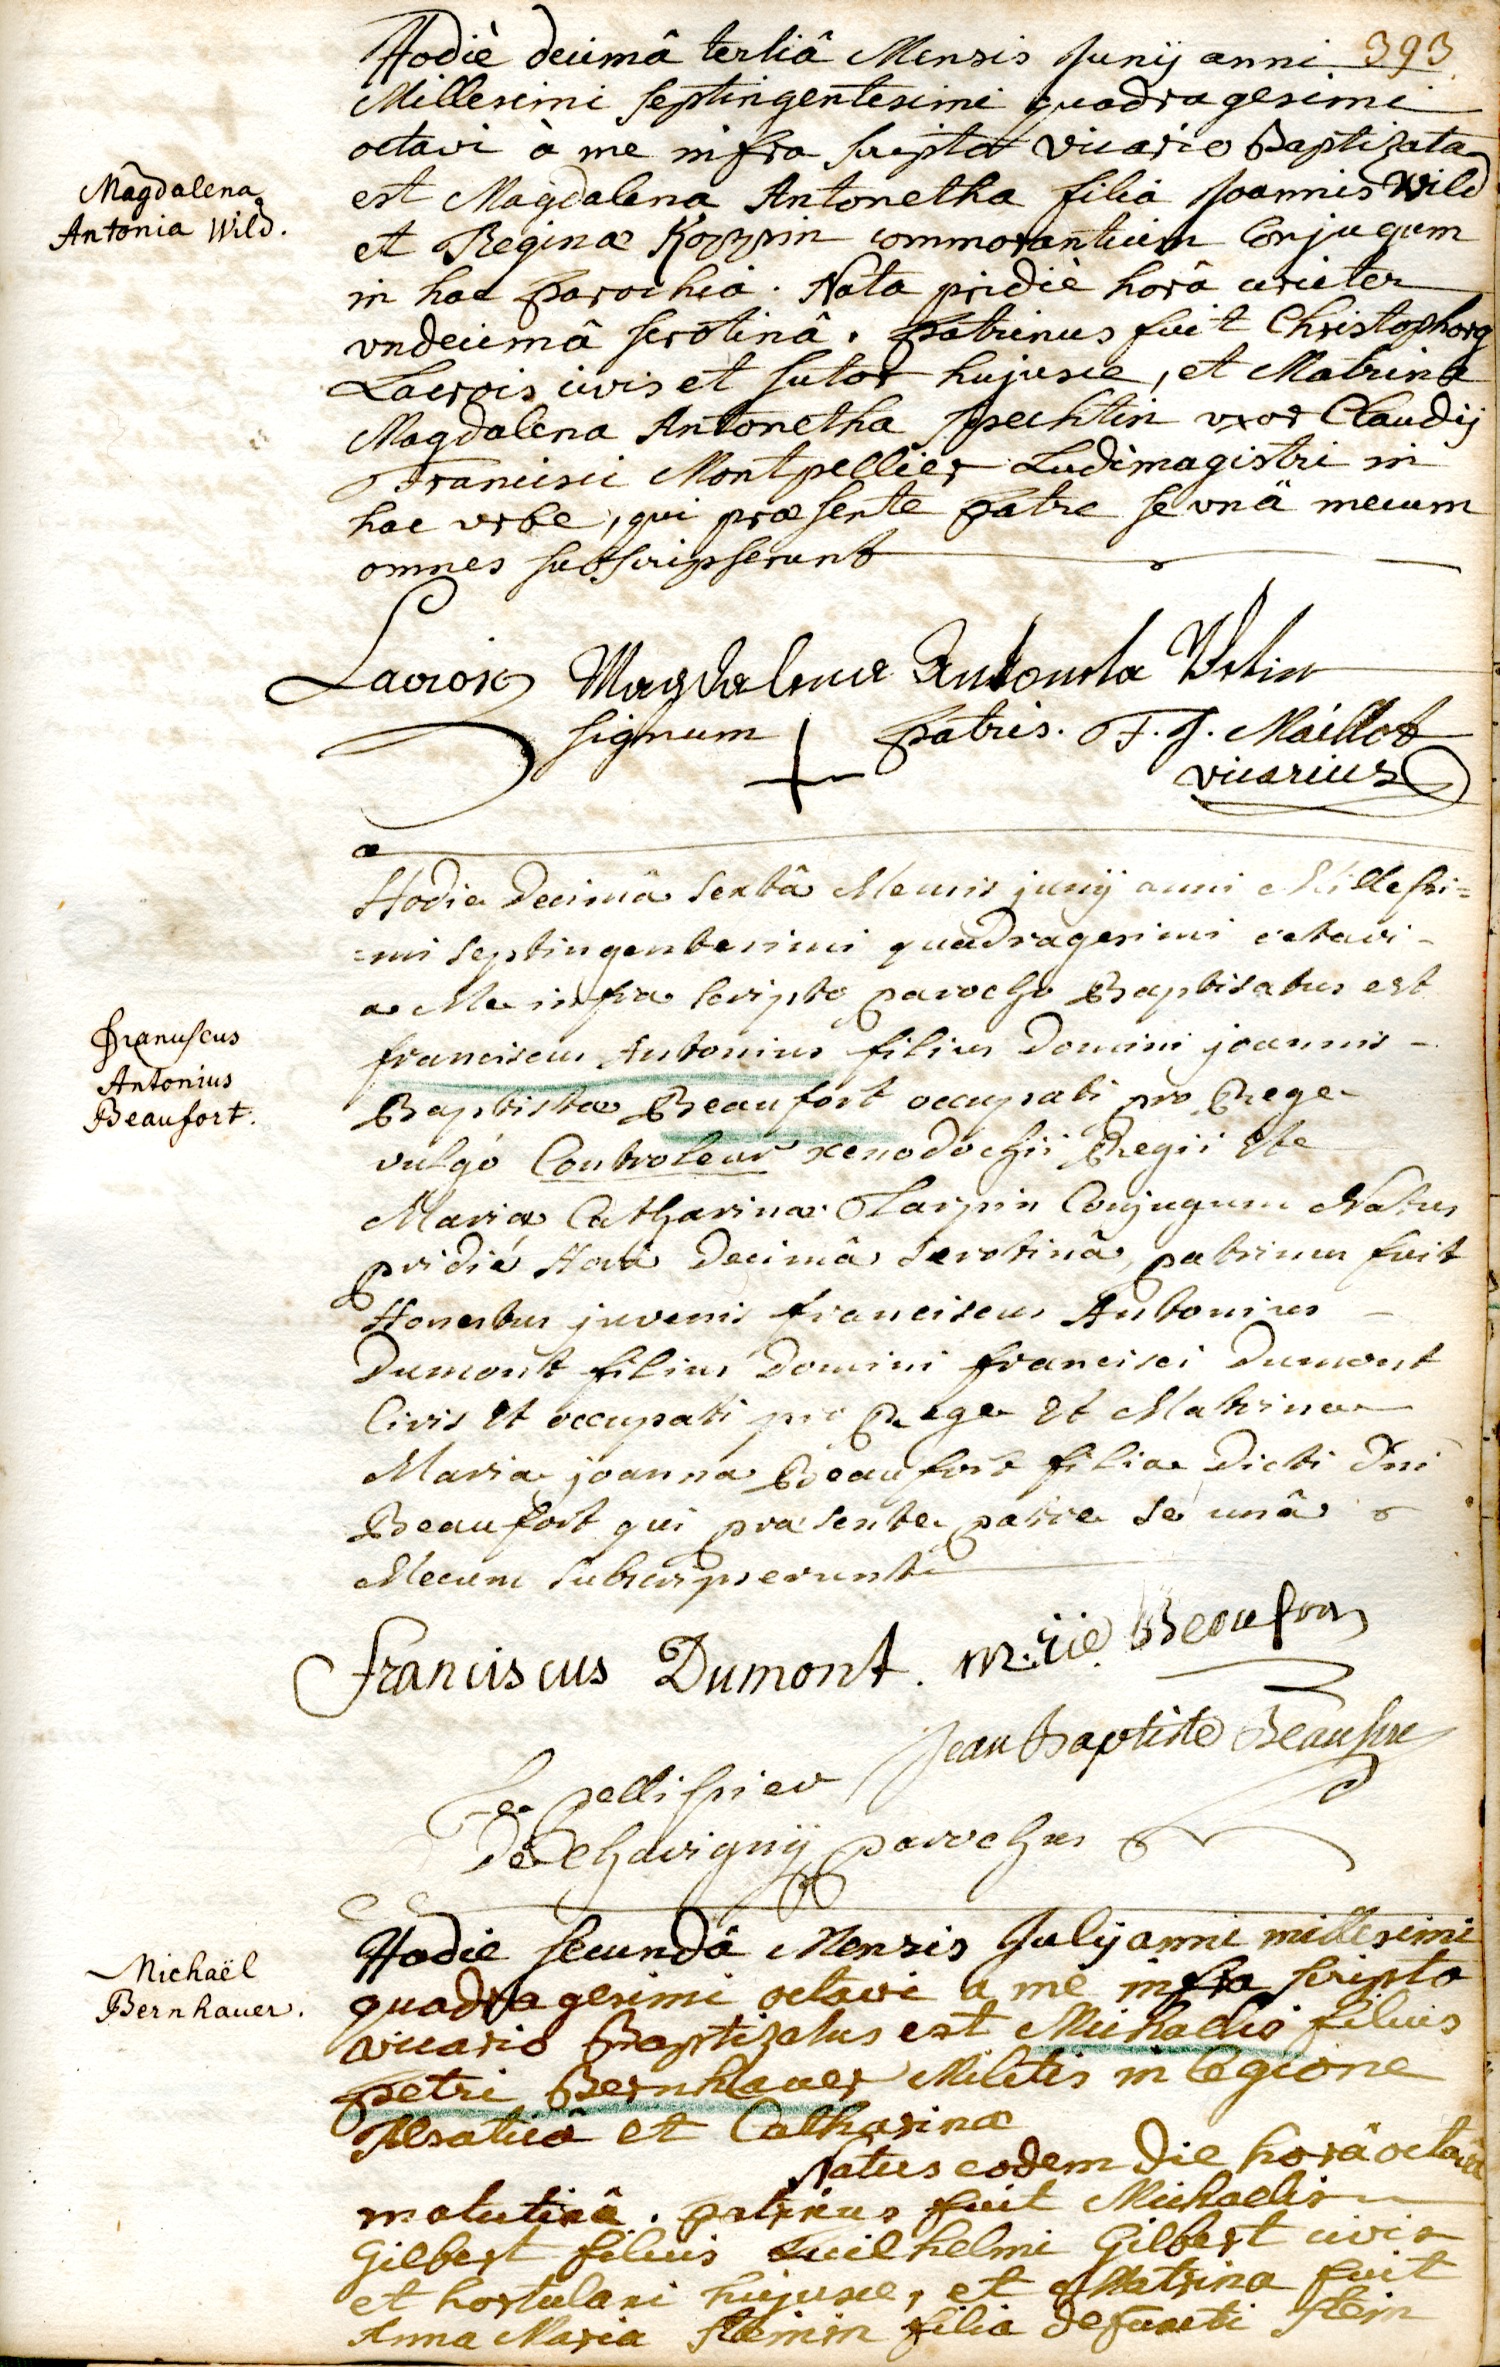 393
Hodiè decimâ tertiâ Mensis Junij anni
Millesimi septingentesimi quadragesimi
octavi à me infra scripto vicario Baptizata
est Magdalena Antonetha filia Joannis Wild
et Reginæ Kozzin commorantium Conjugum
in hac parochia. Nata pridiè horâ circiter
undecimâ serotinâ. patrinus fuit Christophorg
Lacrois civis et sutor hujusce, et Matrina
Magdalena Antonetha Spechtin uxor Claudij
Francisci Montpellier Ludimagistri in
hac urbe, qui præsente patre se unâ mecum
omnes subscripserunt
Magdalena
Antonia Wild.
Lacroix Magdalena Antoneta
signum patris. F. J. Maillot
vicarius
Hodie Decimâ sextâ Mensis junij anni Millesi=
=mi septingentesimi quadragesimi octavi -
a Me infra scripto parocho Baptisatus est
franciscus Antonius filius Domini joannis -
Baptistæ Beaufort occupati pro Rege
vulgó Controleur xenodochii Regii Et
Mariæ Catharinæ Conjugum Natus
pridié Horâ Decimâ serotinâ, patrinus fuit
Honestus juvenis franciscus Antonius -
Dumont filius Domini francisci Dumont
Civis Et occupati pro Rege Et Matrina
Maria joanna Beaufort filia Dicti Dni
Beaufort qui præsente patre se unâ
Mecum subscripserunt
Franciscus
Antonius
Beaufort.
Franciscus Dumont.
Jean Baptiste
Le pellissier
De Chavignÿ parochus
Hodie secundâ Mensis Julij anni millesimi
quadragesimi octavi a me infra scripto
vicario Baptizatus est Michaelis filius
petri Bernhauer Militis in legione
Alsaticâ et Catharinæ
Natus eodem die horâ octavâ
matutinâ. patrinus fuit Michaelis
Gilbert filius Guilhelmi Gilbert civis
et hortulani hujusce, et Matrina fuit
Anna Maria Steinin filia defuncti Stein
Michaël
Bernhauer.